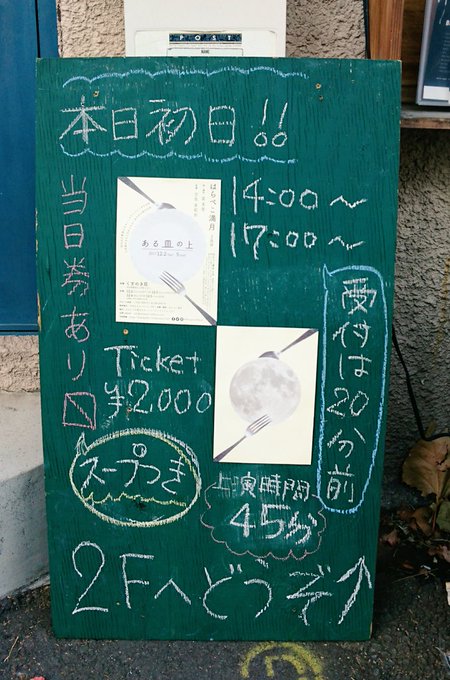 POST
NAME
本日初日!!
当日券あり
14:00〜
17:00〜
はらぺこ満月
ある皿の上
受付は20分前
Ticket
¥2,000
スープつき
上演時間
45分
2Fへどうぞ↑